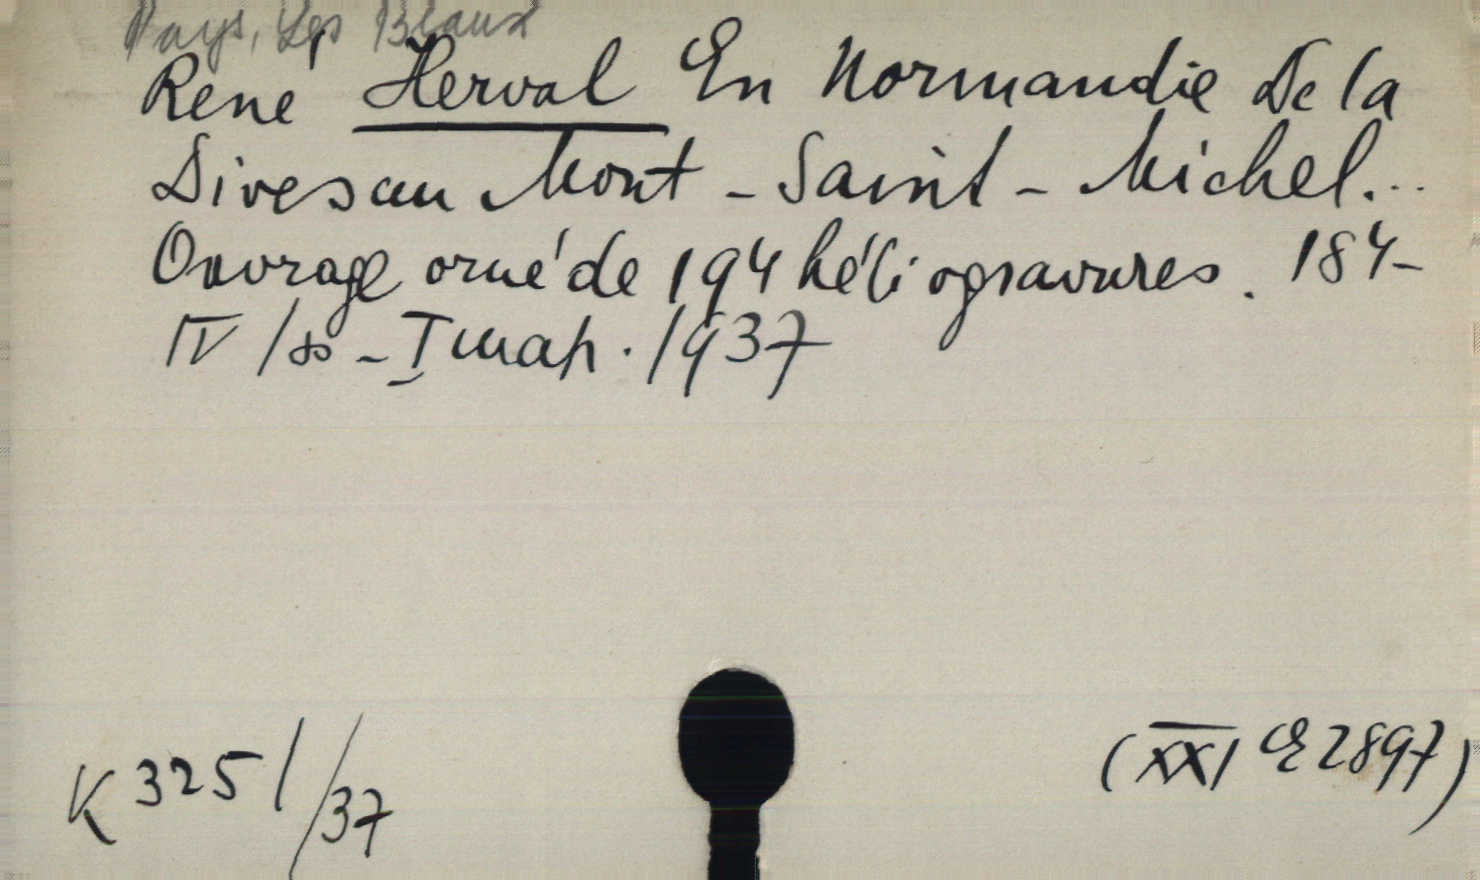 Pays, Les Beaux
René Herval En Normandie De la
Dives au Mont - Saint - Michel...
Ouvrage orné de 194 héliogravures. 184-
IV /so - I map. 1937
K 3251/37
(XXI CE 2897)